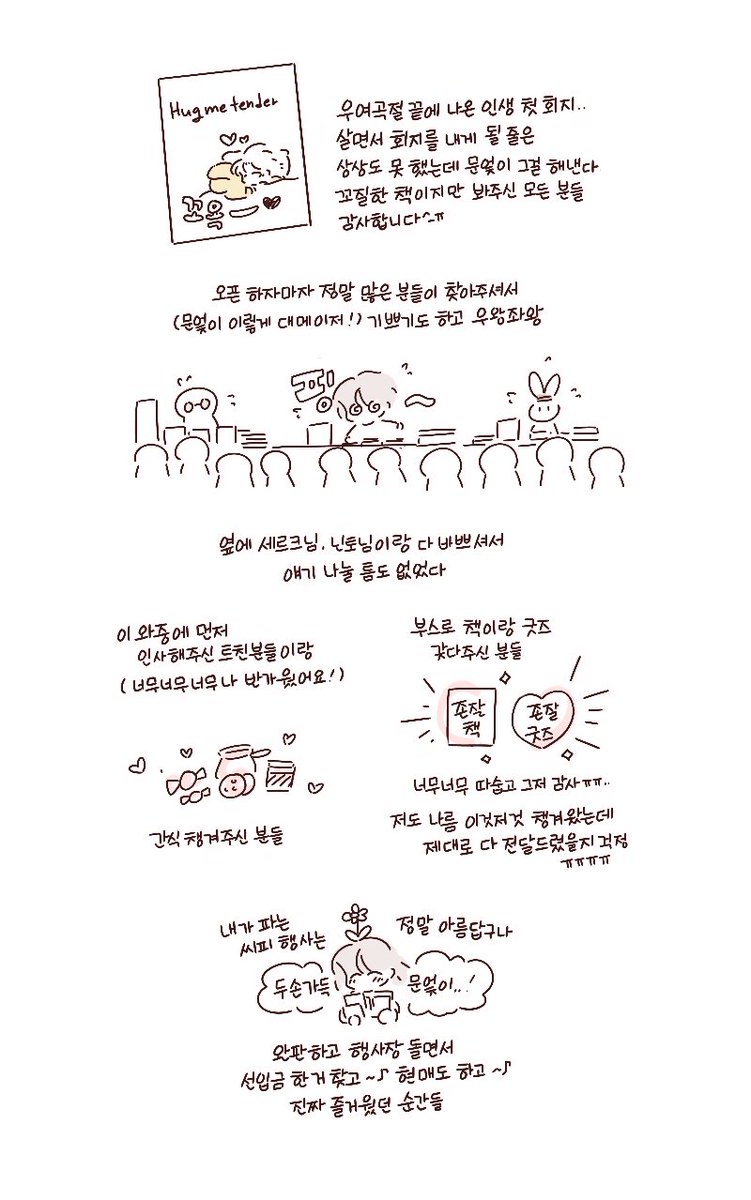 Hug me tender
꼬옥
우여곡절 끝에 나온 인생 첫 회지..
살면서 회지를 내게 될 줄은
상상도 못 했는데 문엊이 그걸 해낸다
꼬질한 책이지만 봐주신 모든 분들
감사합니다^_ㅠ
오픈 하자마자 정말 많은 분들이 찾아주셔서
(문엊이 이렇게 대메이저!) 기쁘기도 하고 우왕좌왕
옆에 세르크님, 닌토님이랑 다 바쁘셔서
얘기 나눌 틈도 없었다
이 와중에 먼저
인사해주신 트친분들이랑
(너무너무너무나 반가웠어요!)
간식 챙겨주신 분들
부스로 책이랑 굿즈
갖다주신 분들
존잘
책
존잘
굿즈
너무너무 따숩고 그저 감사ㅠㅠ..
저도 나름 이것저것 챙겨왔는데
제대로 다 전달드렸을지 걱정
ㅠㅠㅠㅠ
내가 파는
씨피 행사는
정말 아름답구나
두손가득
문엊이..!
완판하고 행사장 돌면서
선입금 한거 찾고~♪ 현매도 하고~♪
진짜 즐거웠던 순간들